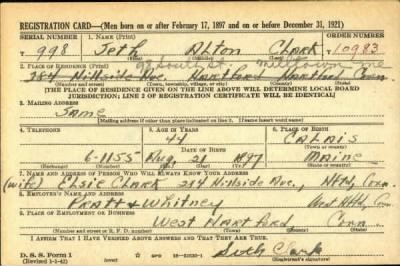 REGISTRATION CARD—(Men born on or after February 17, 1897 and on or before December 31, 1921)
SERIAL NUMBER 1. NAME (Print) ORDER NUMBER
U 998 Seth Alton Clark 10983
(First) (Middle) (Last)
2. PLACE OF RESIDENCE (Print) Milltown, Me
284 Hillside Ave. Hartford Hartford Conn.
(Number and street) (Town, township, village, or city) (County) (State)
[THE PLACE OF RESIDENCE GIVEN ON THE LINE ABOVE WILL DETERMINE LOCAL BOARD
JURISDICTION; LINE 2 OF REGISTRATION CERTIFICATE WILL BE IDENTICAL]
3. MAILING ADDRESS
Same
[Mailing address if other than place indicated on line 2. If same insert word same]
4. TELEPHONE 5. AGE IN YEARS 6. PLACE OF BIRTH
44 Calais
DATE OF BIRTH (Town or county)
6-1155 Aug. 21 1897 Maine
(Exchange) (Number) (Mo.) (Day) (Yr.) (State or country)
7. NAME AND ADDRESS OF PERSON WHO WILL ALWAYS KNOW YOUR ADDRESS
(wife) Elsie Clark 284 Hillside Ave., Htfd, Conn.
8. EMPLOYER'S NAME AND ADDRESS
Pratt & Whitney West Htfd, Conn
9. PLACE OF EMPLOYMENT OR BUSINESS
West Hartford Conn.
(Number and street or R. F. D. number) (Town) (County) (State)
I AFFIRM THAT I HAVE VERIFIED ABOVE ANSWERS AND THAT THEY ARE TRUE.
D. S. S. Form 1 GPO 16—21630-1 Seth Clark
(Revised 1-1-42) (over) (Registrant's signature)